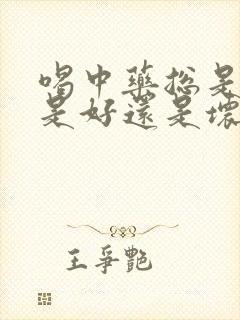 喝中藥總是
是好還是壞
王爭艷